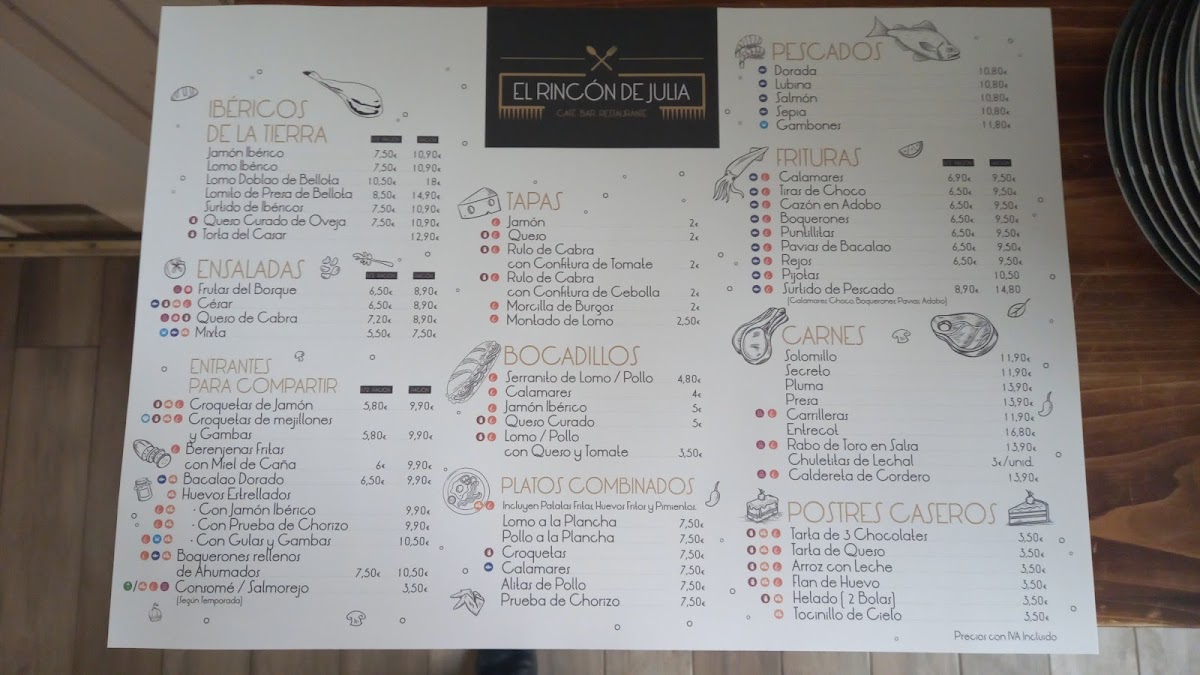 EL RINCÓN DE JULIA
CAFÉ BAR RESTAURANTE
IBÉRICOS
DE LA TIERRA
1/2 RACIÓN RACIÓN
Jamón Ibérico 7,50€ 10,90€
Lomo Ibérico 7,50€ 10,90€
Lomo Doblao de Bellota 10,50€ 18€
Lomito de Presa de Bellota 8,50€ 14,90€
Surtido de Ibéricos 7,50€ 10,90€
Queso Curado de Oveja 7,50€ 10,90€
Torta del Casar 12,90€
ENSALADAS
1/2 RACIÓN RACIÓN
Frutas del Bosque 6,50€ 8,90€
César 6,50€ 8,90€
Queso de Cabra 7,20€ 8,90€
Mixta 5,50€ 7,50€
ENTRANTES
PARA COMPARTIR
1/2 RACIÓN RACIÓN
Croquetas de Jamón 5,80€ 9,90€
Croquetas de mejillones
y Gambas 5,80€ 9,90€
Berenjenas Fritas
con Miel de Caña 6€ 9,90€
Bacalao Dorado 6,50€ 9,90€
Huevos Estrellados
· Con Jamón Ibérico 9,90€
· Con Prueba de Chorizo 9,90€
· Con Gulas y Gambas 10,50€
Boquerones rellenos
de Ahumados 7,50€ 10,50€
Consomé / Salmorejo 3,50€
(Según Temporada)
TAPAS
Jamón 2€
Queso 2€
Rulo de Cabra
con Confitura de Tomate 2€
Rulo de Cabra
con Confitura de Cebolla 2€
Morcilla de Burgos 2€
Montado de Lomo 2,50€
BOCADILLOS
Serranito de Lomo / Pollo 4,80€
Calamares 4€
Jamón Ibérico 5€
Queso Curado 5€
Lomo / Pollo
con Queso y Tomate 3,50€
PLATOS COMBINADOS
Incluyen Patatas Fritas, Huevos Fritos y Pimientos.
Lomo a la Plancha 7,50€
Pollo a la Plancha 7,50€
Croquetas 7,50€
Calamares 7,50€
Alitas de Pollo 7,50€
Prueba de Chorizo 7,50€
PESCADOS
Dorada 10,80€
Lubina 10,80€
Salmón 10,80€
Sepia 10,80€
Gambones 11,80€
FRITURAS
1/2 RACIÓN RACIÓN
Calamares 6,90€ 9,50€
Tiras de Choco 6,50€ 9,50€
Cazón en Adobo 6,50€ 9,50€
Boquerones 6,50€ 9,50€
Puntillitas 6,50€ 9,50€
Pavías de Bacalao 6,50€ 9,50€
Rejos 6,50€ 9,50€
Pijotas 10,50
Surtido de Pescado 8,90€ 14,80
(Calamares, Choco, Boquerones, Pavias, Adobo)
CARNES
Solomillo 11,90€
Secreto 11,90€
Pluma 13,90€
Presa 13,90€
Carrilleras 11,90€
Entrecot 16,80€
Rabo de Toro en Salsa 13,90€
Chuletitas de Lechal 3€/unid.
Caldereta de Cordero 13,90€
POSTRES CASEROS
Tarta de 3 Chocolates 3,50€
Tarta de Queso 3,50€
Arroz con Leche 3,50€
Flan de Huevo 3,50€
Helado ( 2 Bolas) 3,50€
Tocinillo de Cielo 3,50€
Precios con IVA Incluido